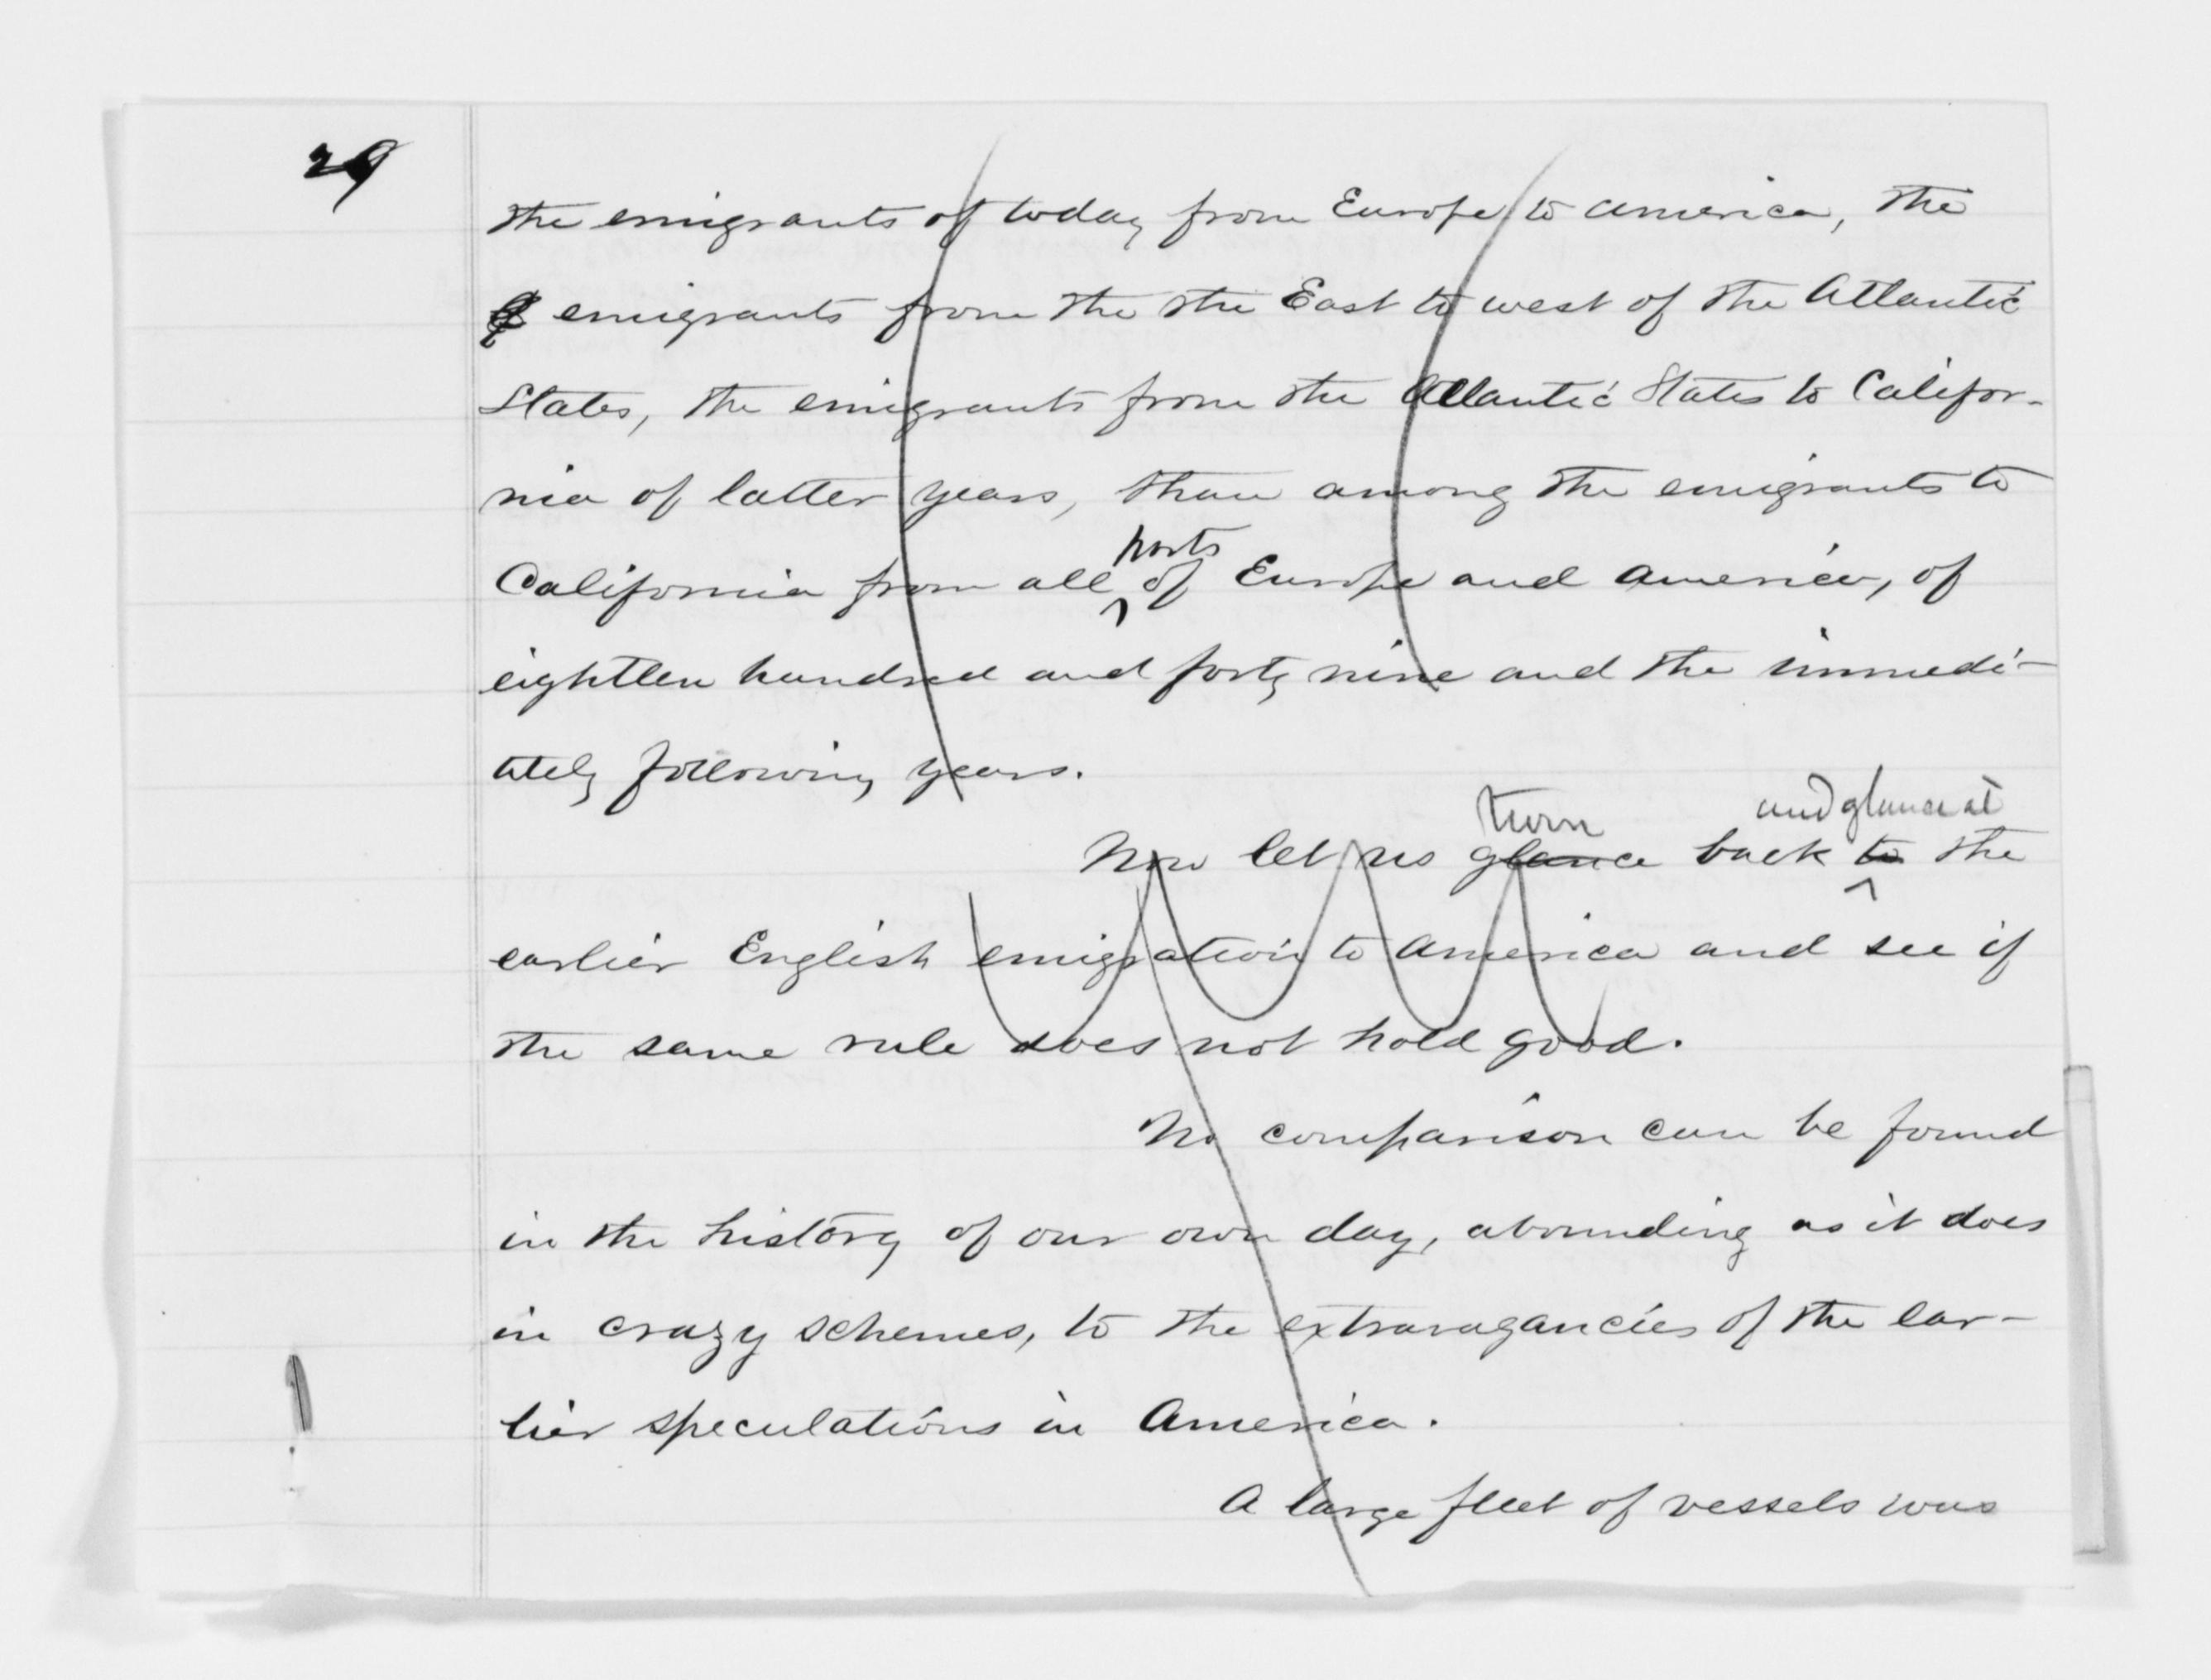 29
the emigrants of today from Europe to America, the
emigrants from the the East to west of the Atlantic
States, the emigrants from the Atlantic States to Califor-
nia of latter years, than among the emigrants to
parts
California from all of Europe and America, of
eighteen hundred and forty nine and the immedi-
ately following years.
turn and glance at
Now let us glance back to the
earlier English emigration to America and see if
the same rule does not hold good.
No comparison can be found
in the history of our own day, abounding as it does
in crazy schemes, to the extravagancies of the ear-
lier speculations in America.
A large fleet of vessels was